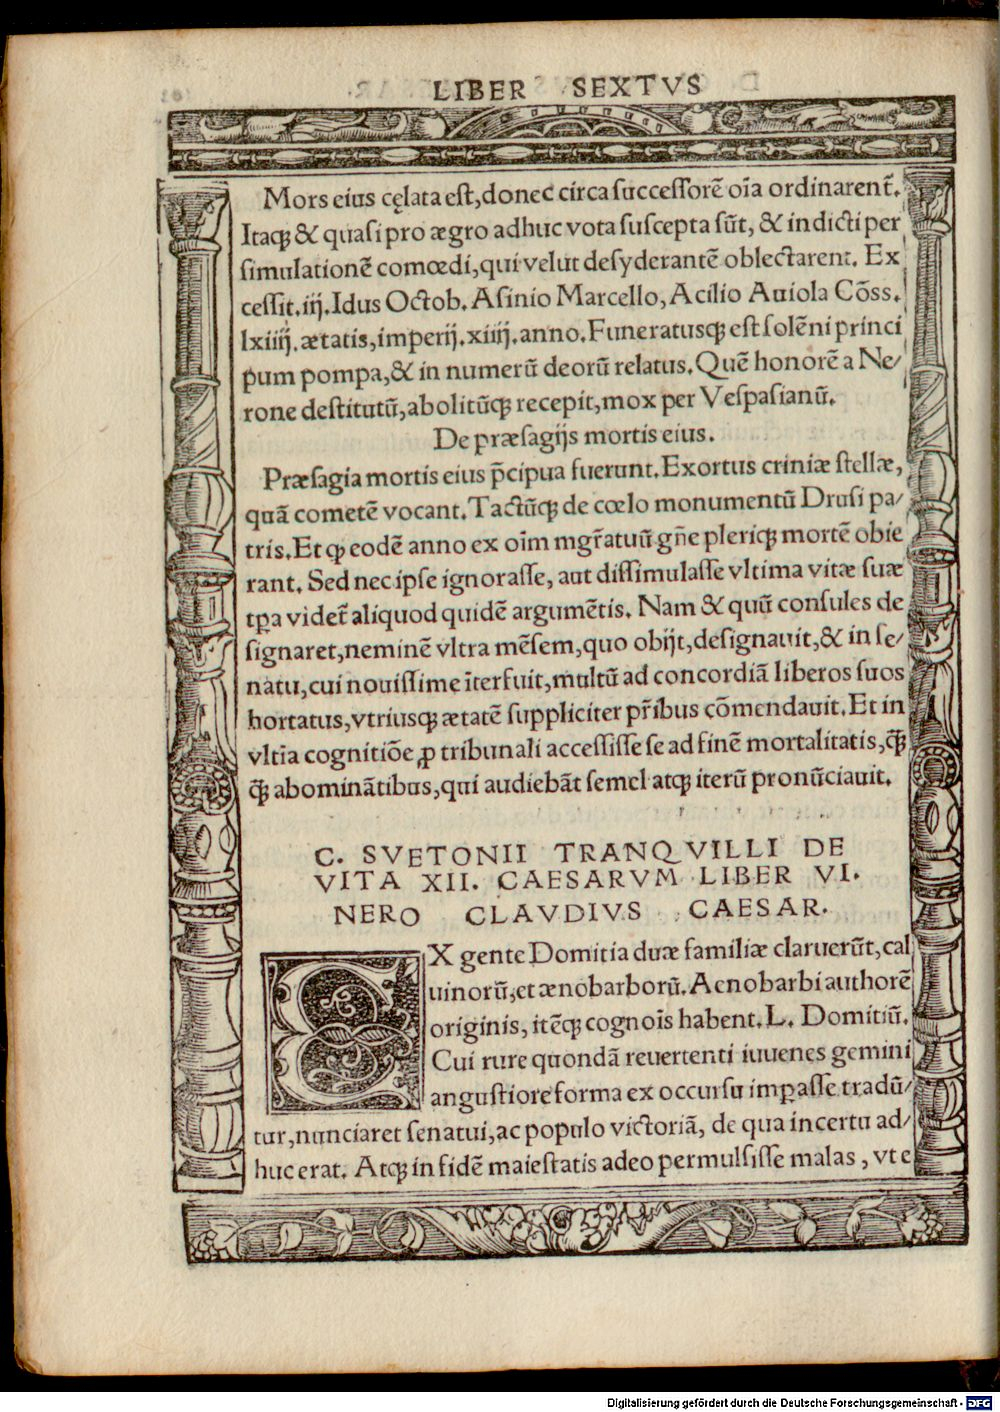 LIBER SEXTVS
Mors eius cęlata est, donec circa successorē oīa ordinarent̄.
Itaqꝫ & quasi pro ægro adhuc vota suscepta sūt, & indicti per
simulationē comœdi, qui velut desyderantē oblectarent. Ex
cessit. iij. Idus Octob. Asinio Marcello, Acilio Auiola Cōss.
lxiiij. ætatis, imperij. xiiij. anno. Funeratusqꝫ est solēni princi
pum pompa, & in numerū deorū relatus. Quē honorē a Ne/
rone destitutū, abolitūqꝫ recepit, mox per Vespasianū.
De præsagijs mortis eius.
Præsagia mortis eius p̄cipua fuerunt. Exortus criniæ stellæ,
quā cometē vocant. Tactūqꝫ de cœlo monumentū Drusi pa/
tris. Et ꝙ eodē anno ex oīm mgr̄atuū gn̄e pleriqꝫ mortē obie
rant. Sed nec ipse ignorasse, aut dissimulasse vltima vitæ suæ
tꝑa videt̄ aliquod quidē argumētis. Nam & quū consules de
signaret, neminē vltra mēsem, quo obijt, designauit, & in se/
natu, cui nouissime īterfuit, multū ad concordiā liberos suos
hortatus, vtriusqꝫ ætatē suppliciter pr̄ibus cōmendauit. Et in
vltīa cognitiōe ꝓ tribunali accessisse se ad finē mortalitatis, qꝫ̄
qꝫ̄ abominātibus, qui audiebāt semel atqꝫ iterū pronūciauit.
C. SVETONII TRANQVILLI DE
VITA XII. CAESARVM LIBER VI.
NERO CLAVDIVS CAESAR.
EX gente Domitia duæ familiæ claruerūt, cal
uinorū, et ænobarborū. Aenobarbi authorē
originis, itēqꝫ cognoīs habent. L. Domitiū.
Cui rure quondā reuertenti iuuenes gemini
angustiore forma ex occursu imꝑasse tradū/
tur, nunciaret senatui, ac populo victoriā, de qua incertu ad/
huc erat. Atqꝫ in fidē maiestatis adeo permulsisse malas, vt e
Digitalisierung gefördert durch die Deutsche Forschungsgemeinschaft - DFG